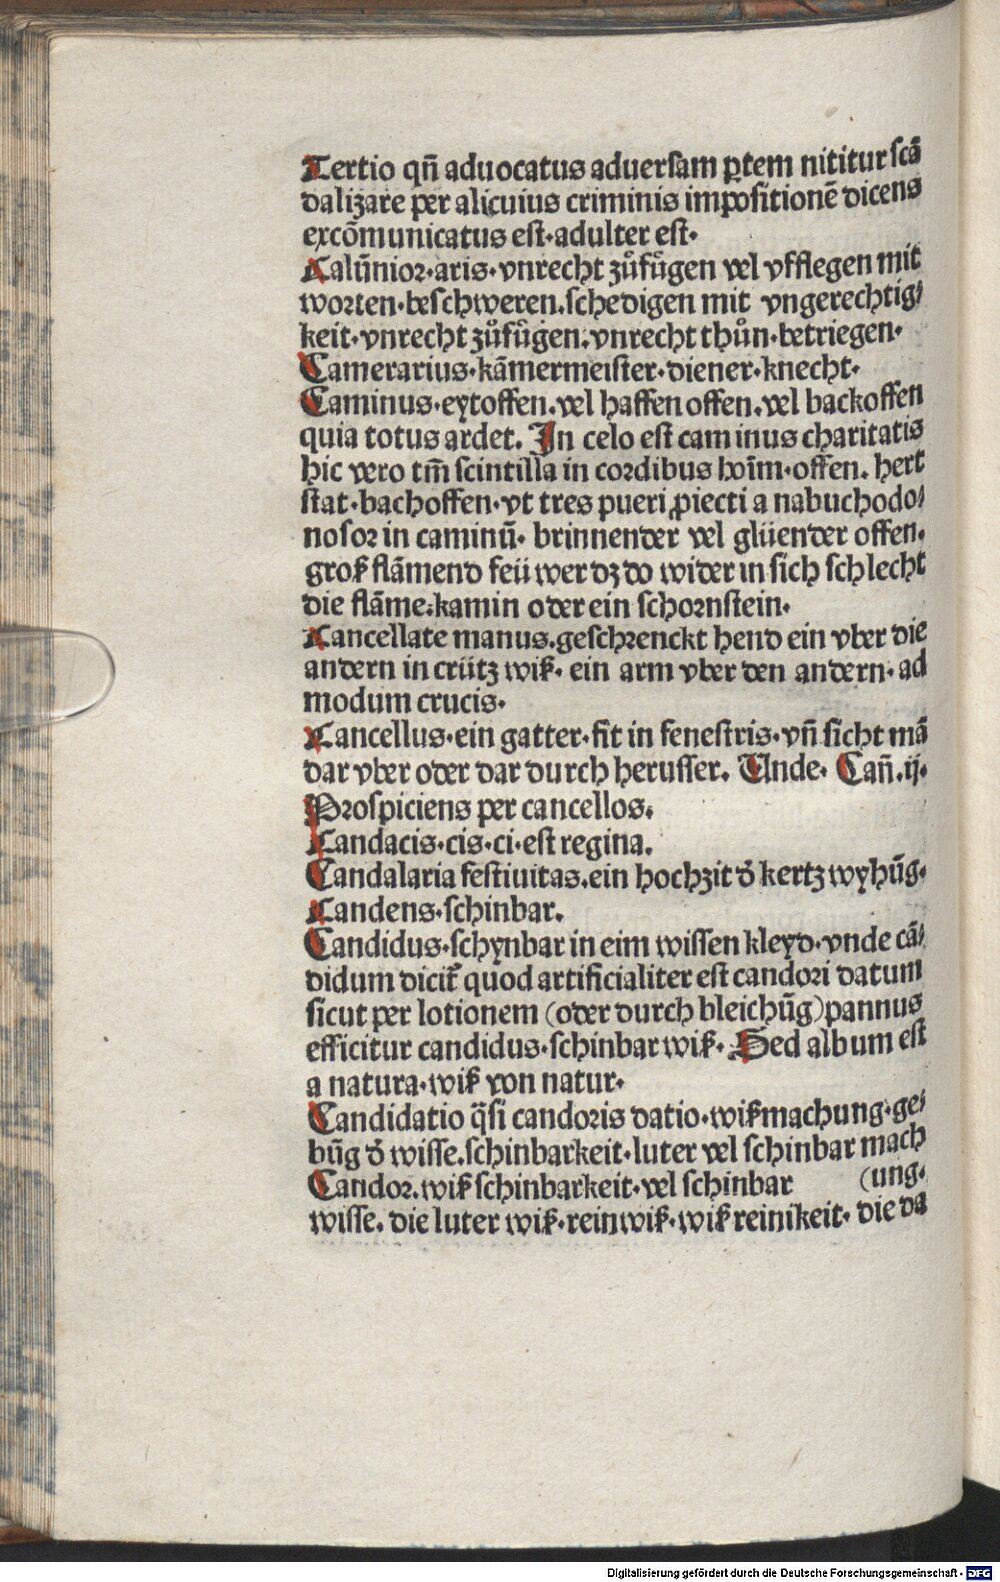 Tertio qn̄ aduocatus aduersam ꝑtem nititur scā
dalizare per alicuius criminis impositionē dicens
excōmunicatus est·adulter est·
Calūnior·aris·vnrecht zůfůgen vel vfflegen mit
worten·beschweren.schedigen mit vngerechtig/
keit·vnrecht zůfůgen.vnrecht thůn·betriegen·
Camerarius·kāmermeister·diener·knecht·
Caminus·eytoffen.vel haffen offen.vel backoffen
quia totus ardet. In celo est caminus charitatis
hic vero tm̄ scintilla in cordibus hoīm·offen. hert
stat·bachoffen·vt tres pueri ꝓiecti a nabuchodo/
nosor in caminū· brinnender vel glüender offen·
groß flāmend feüwer dz do wider in sich schlecht
die flāme:kamin oder ein schornstein·
Cancellate manus.geschrenckt hend ein vber die
andern in crütz wiß· ein arm vber den andern· ad
modum crucis·
Cancellus·ein gatter·fit in fenestris·vn̄ sicht mā
dar vber oder dar durch herusser. Unde· Can̄.ij.
Prospiciens per cancellos.
Candacis·cis·ci·est regina.
Candalaria festiuitas.ein hochzit ď kertzwyhūg·
Candens·schinbar.
Candidus·schynbar in eim wissen kleyd·vnde cā/
didum dicit᷑ quod artificialiter est candori datum
sicut per lotionem (oder durch bleichūg)pannus
efficitur candidus·schinbar wiß· Sed album est
a natura·wiß von natur·
Candidatio q̄si candoris datio·wißmachung·ge/
būg ď wisse.schinbarkeit·luter vel schinbar mach
Candor.wiß schinbarkeit·vel schinbar (ung·
wisse. die luter wiß·reinwiß·wiß reinikeit· die da
Digitalisierung gefördert durch die Deutsche Forschungsgemeinschaft - DFG